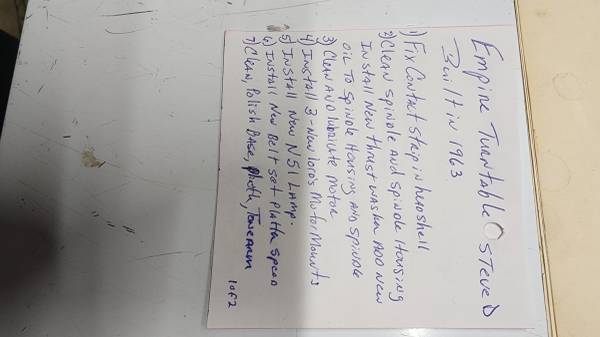 Empire Turntable Steve D
Built in 1963
1) Fix Contact Strip in headshell
2) Clean Spindle And Spindle Housing
Install New thrust washer ADD New
Oil To Spindle Housing And Spindle
3) Clean And lubricate Motor
4) Install 3-New Lords Motor Mounts
5) Install New N51 Lamp.
6) Install New Belt Set Platter Speed
7) Clean, Polish Base, Tonearm
1 of 2